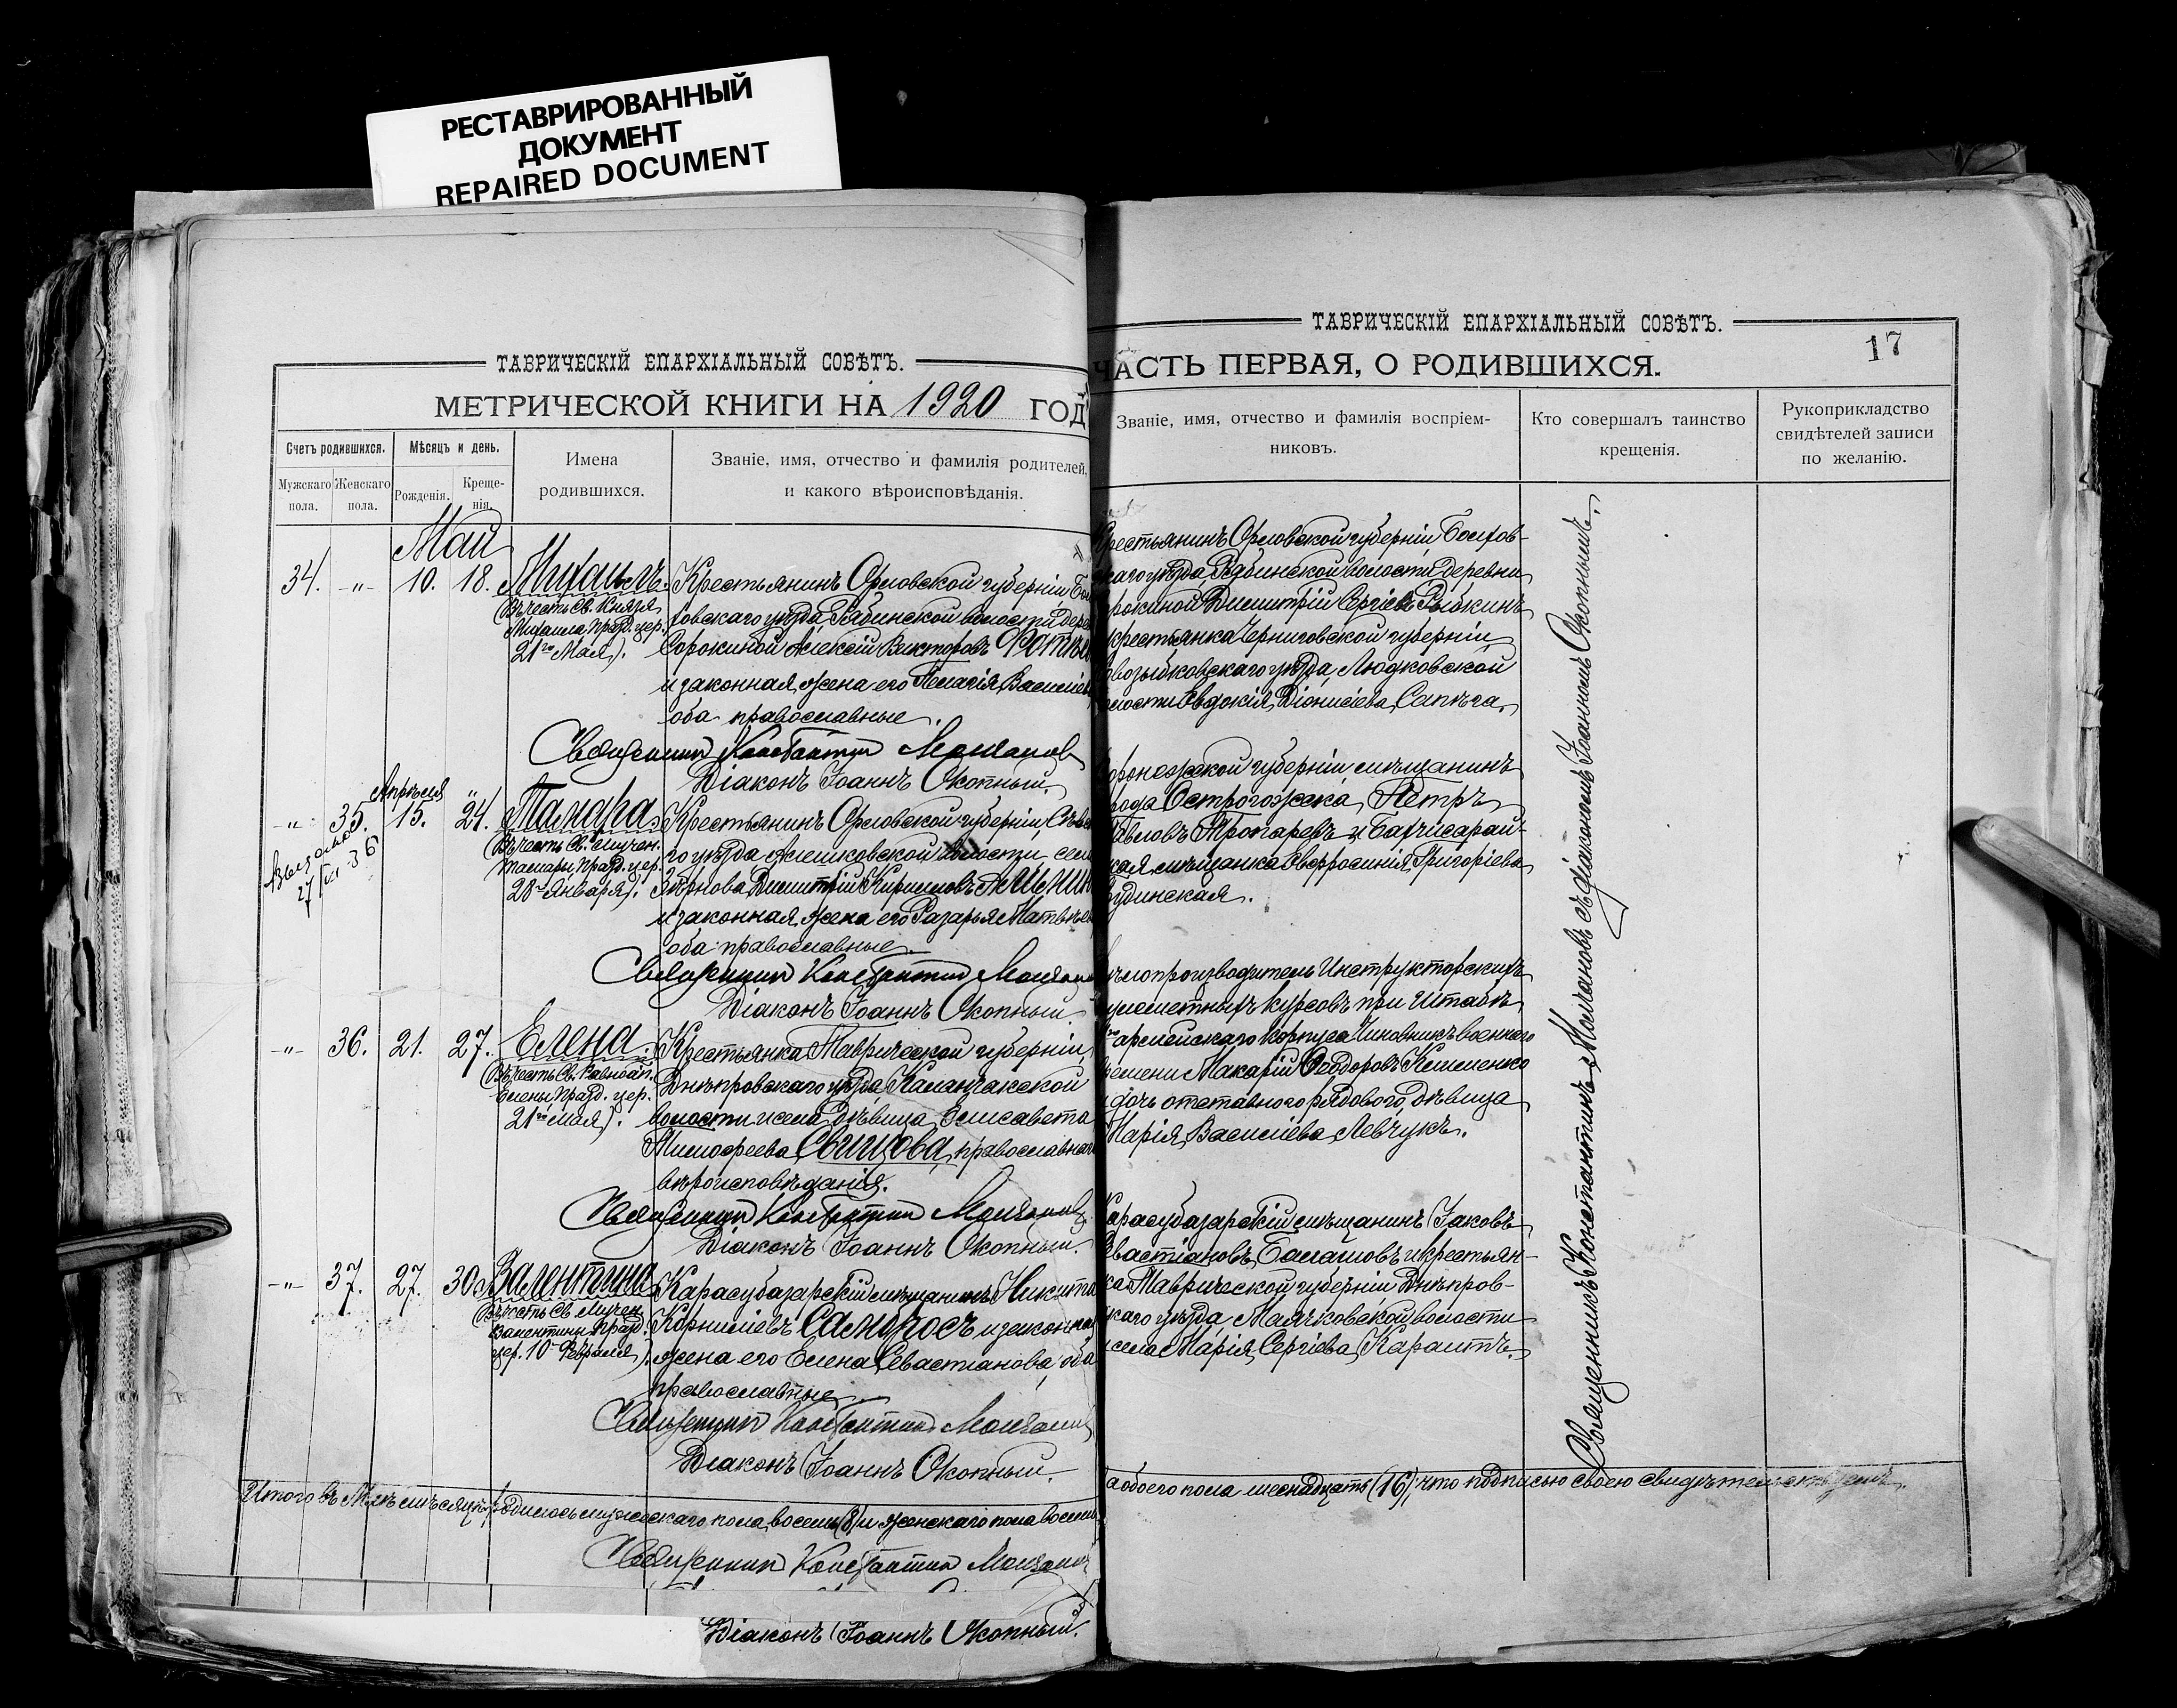 РЕСТАВРИРОВАННЫЙ
ДОКУМЕНТ
REPAIRED DOCUMENT
ТАВРИЧЕСКІЙ ЕПАРХІАЛЬНЫЙ СОВѢТЪ.
МЕТРИЧЕСКОЙ КНИГИ НА 1920 ГОД
Счетъ родившихся.
Мужскаго пола.
Женскаго пола.
Мѣсяцъ и день.
Рожденія.
Креще-
нія.
Имена
родившихся.
Званіе, имя, отчество и фамилія родителей,
и какого вѣроисповѣданія.
Май
34. -"- 10. 18. Михаилъ.
Въ честь Св. Князя
Михаила, празд. цер.
21го Мая).
Крестьянинъ Орловской губерніи Бол
ховскаго уѣзда, Рябинской волости, дере
Сорокиной Алексій Викторовъ
и законная жена его Пелагія Василіе
оба православные.
Священник Константин Молчанов
Діаконъ Іоаннъ Окопный.
Апрѣля
-"- 35. 15. 24. Тамара.
27/VI-36
Въ честь Св. мучен.
Тамары, празд. цер.
Января).
Крестьянинъ Орловской губерніи, Сѣв
го уѣзда волости, сел
Димитрій Кирилловъ
и законная жена его Матвѣе
оба православные.
Священник Константин Молчанов
Діаконъ Іоаннъ Окопный
-"- 36. 21. 27. Елена.
Въ честь Св. Равноап.
Елены, празд. цер.
21го мая).
Крестьянка Таврической губерніи,
Днѣпровскаго уѣзда, Каланчакской
волости и села дѣвица Елисавета
Тимофеева Свищова, православнаго
вѣроисповѣданія.
Священник Константин Молчанов
Діаконъ Іоаннъ Окопный.
-"- 37. 27. 30. Валентина
Въ честь Св. Мучен.
Валентины, празд.
цер. 10 Февраля).
Карасубазарскій мѣщанинъ Никита
Корниліевъ Саморосъ и законная
жена его Елена Севастіанова, оба
православные
Священник Константин Молчанов
Діаконъ Іоаннъ Окопный.
Итого въ Маѣ мѣсяцѣ родилось мужескаго пола восемь (8) и женскаго пола восемь
Священник Константин Молчанов
Діаконъ Іоаннъ Окопный.
ТАВРИЧЕСКІЙ ЕПАРХІАЛЬНЫЙ СОВѢТЪ.
ЧАСТЬ ПЕРВАЯ, О РОДИВШИХСЯ.
17
Званіе, имя, отчество и фамилія воспріем-
никовъ.
Кто совершалъ таинство
крещенія.
Рукоприкладство
свидѣтелей записи
по желанію.
Крестьянинъ Орловской губерніи Болхов-
скаго уѣзда, Рябинской волости, деревни
Сорокиной Димитрій Сергіевъ Рыбкинъ
и крестьянка Черниговской губерніи
Новозыбковскаго уѣзда, Людковской
волости Евдокія Діонисіева Сапѣга.
Воронежской губерніи мѣщанинъ
города Острогожска, Петръ
Павловъ Тропаревъ и Бахчисарай-
ская мѣщанка Евфросинія Григоріева
удинская.
Дѣлопроизводитель Инструкторскихъ
пулеметныхъ курсовъ при Штабѣ
армейскаго корпуса Чиновникъ военнаго
времени Макарій Феодоровъ Клименко
и дочь отставного рядового, дѣвица
Марія Василіева Левчукъ.
Карасубазарскій мѣщанинъ Іаковъ
Севастіановъ Балашовъ и крестьян-
ка Таврической губерніи Днѣпров-
скаго уѣзда, Маячковской волости
и села Марія Сергіева
Священникъ Константинъ Молчановъ съ діакономъ Іоанномъ Окопнымъ.
а обоего пола шеснадцать (16); что подписью своею свидѣтельствуемъ.